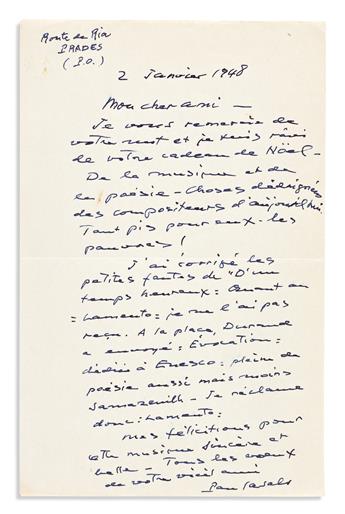 Route de Ria
PRADES
(P.O.)
2 Janvier 1948
Mon cher ami —
Je vous remercie de
votre mot et je suis ravi
de votre cadeau de Nöel –
De la musique et de
la poésie – choses dédaignées
des compositeurs d'aujourd'hui
Tant pis pour eux – les
pauvres !
J'ai corrigé les
petites fautes de "D'un
temps heureux: Quant au
= Lamento = je ne l'ai pas
reçu. A la place, Durand
a envoyé = Évocation =
dédié à Enesco: pleine de
poésie aussi mais moins
Samazeuilh – Je réclame
donc = Lamento =
Mes félicitions pour
cette musique sincère et
belle – Tous les voeux
de votre vieil ami
Pau Casals